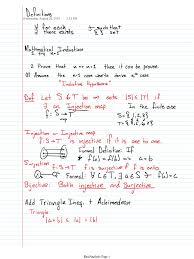 Definitions
Wednesday, August 25, 2010 2:53 PM
∀ for each , ∋ such that
∃ there exists {} set
Mathematical Induction
1. try n=1
2 Prove that n ⇒ n+1 then it can be prove.
Assume the n-1 case use to derive nth case
"Inductive Hypothesis"
Def Let S & T be ∞ sets |S| ≤ |T| if
∃ an injection map In the finite case
f: S → T
Injection or injective map
f: S → T is injective if it is one to one.
Formal Definition: If
f(a) = f(b) ⇒ a = b
Surjection
f: S → T Formal: ∀ b ∈ T, ∃ a ∈ S ∋ f(a) = b
Bijective: Both injective and Surjective.
Add Triangle Ineq. + Archimedean
Triangle
|a+b| ≤ |a| + |b|